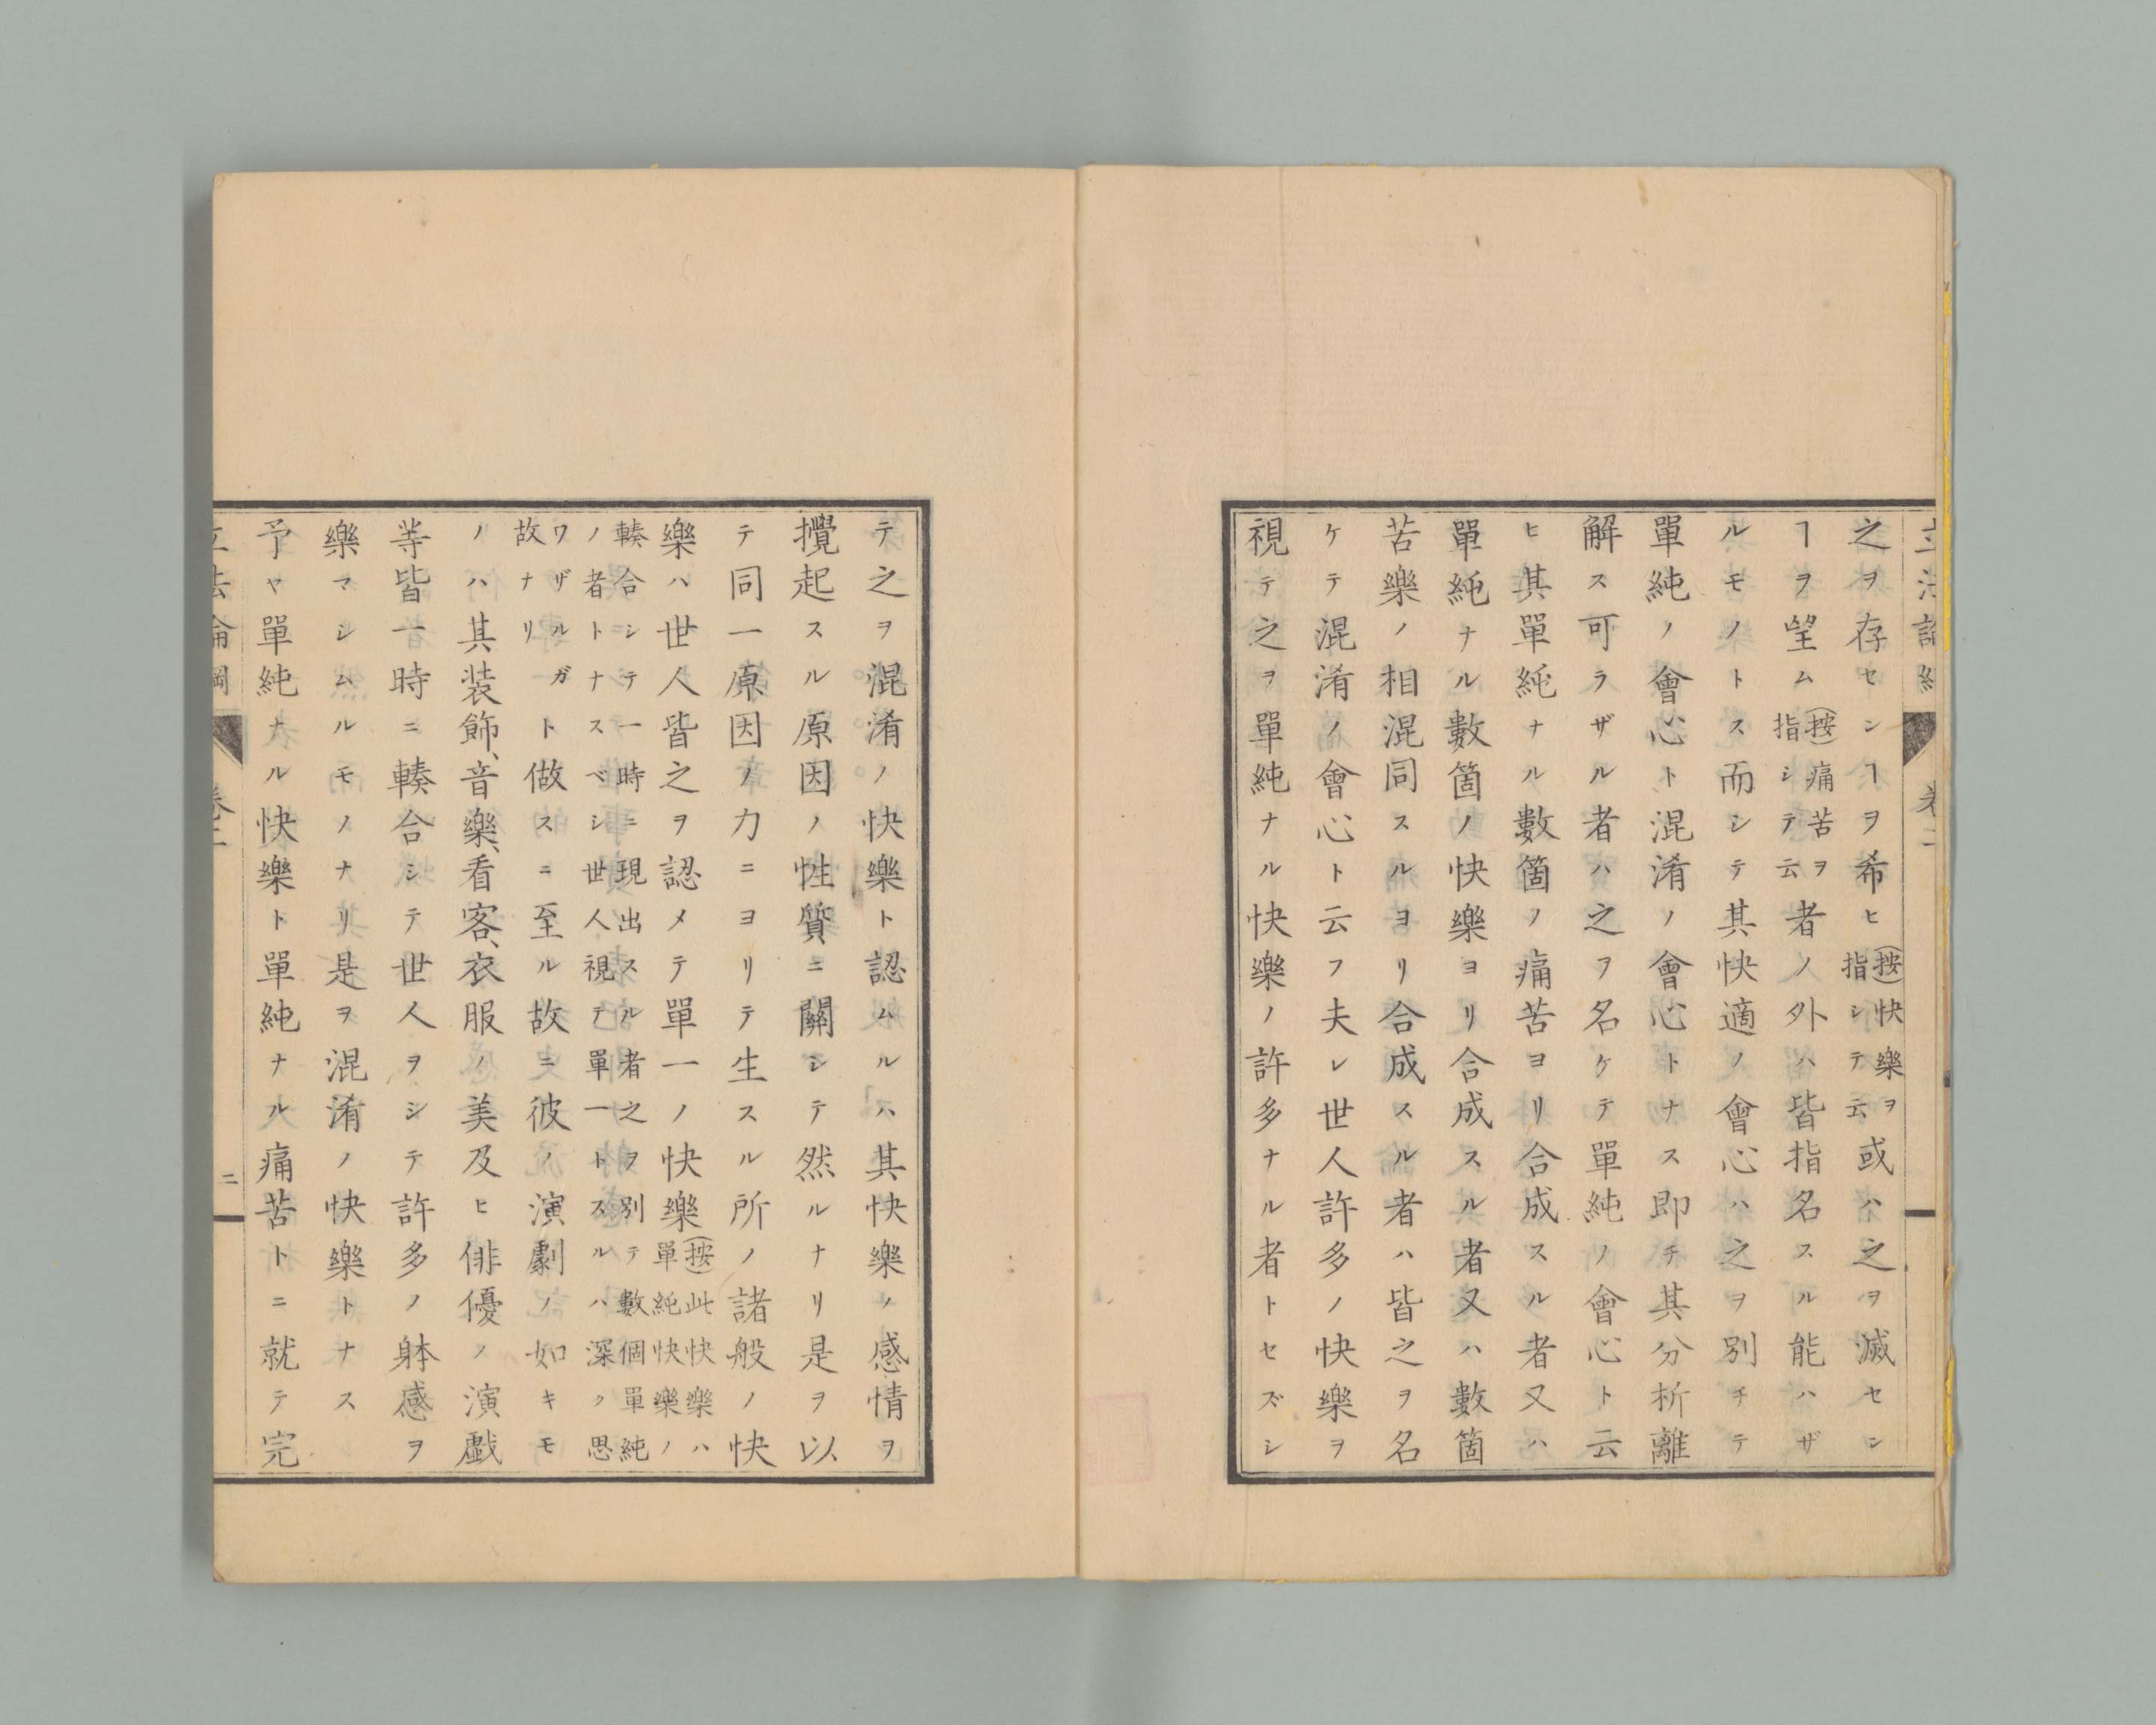 之ヲ存センヿヲ希ヒ(按)快樂ヲ指シテ云或ハ之ヲ滅セン
ヿヲ望ム(按)痛苦ヲ指シテ云者ノ外ハ皆指名スル能ハザ
ルモノトス而シテ其快適ノ會心ハ之ヲ別チテ
單純ノ會心ト混淆ノ會心トナス即チ其分析離
解ス可ラザル者ハ之ヲ名ケテ單純ノ會心ト云
ヒ其單純ナル數箇ノ痛苦ヨリ合成スル者又ハ
單純ナル數箇ノ快樂ヨリ合成スル者又ハ數箇
苦樂ノ相混同スルヨリ合成スル者ハ皆之ヲ名
ケテ混淆ノ會心ト云フ夫レ世人許多ノ快樂ヲ
視テ之ヲ單純ナル快樂ノ許多ナル者トセズシ
テ之ヲ混淆ノ快樂ト認ムルハ其快樂ノ感情ヲ
攪起スル原因ノ性質ニ關シテ然ルナリ是ヲ以
テ同一原因ノ力ニヨリテ生スル所ノ諸般ノ快
樂ハ世人皆之ヲ認メテ單一ノ快樂(按)此快樂ハ單純快樂ノ
輳合シテ一時ニ現出スル者之ヲ別テ數個單純
ノ者トナスベシ世人視テ單一トスルハ深ク思
ワザルガ故ナリト做スニ至ル故ニ彼ノ演劇ノ如キモ
ノハ其装飾、音樂、看客、衣服ノ美及ヒ俳優ノ演戯
等皆一時ニ輳合シテ世人ヲシテ許多ノ躰感ヲ
樂マシムルモノナリ是ヲ混淆ノ快樂トナス
予ヤ單純ナル快樂ト單純ナル痛苦トニ就テ完
立法論綱 卷二 二